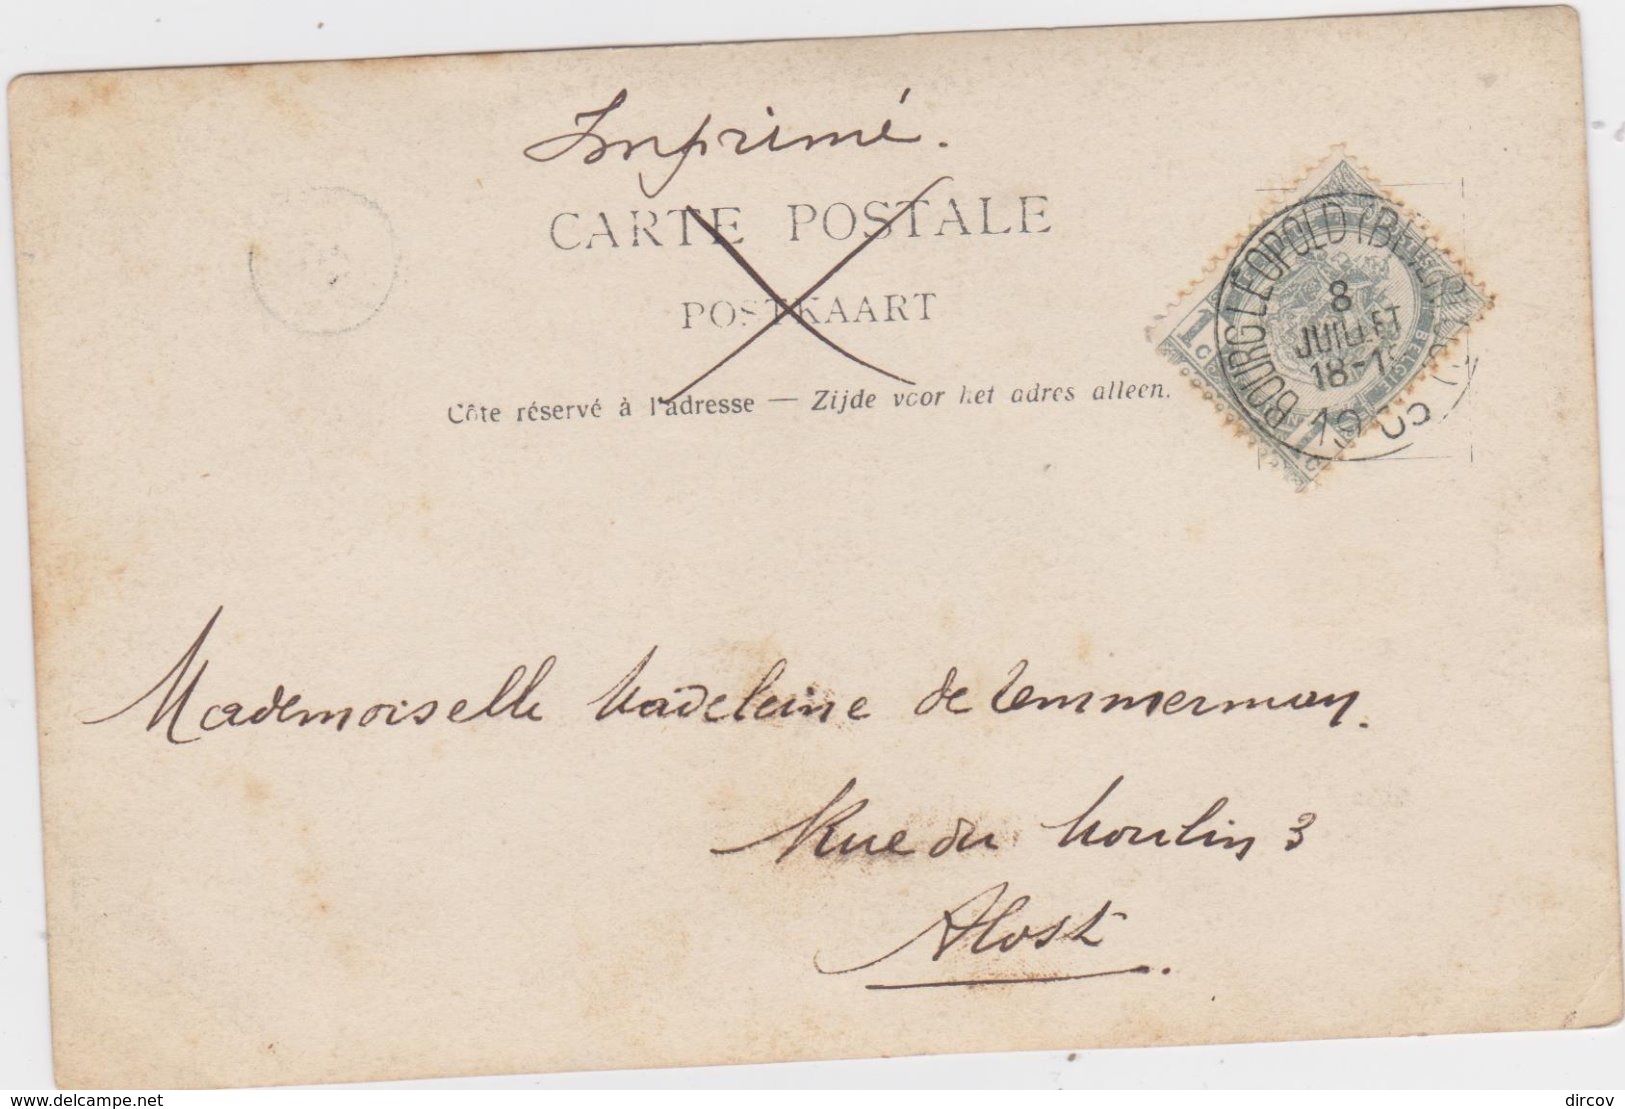 Imprimé.
CARTE POSTALE
POSTKAART
Côte réservé à l'adresse — Zijde voor het adres alleen.
BOURG LÉOPOLD (BEVERLOO)
8
JUILLET
18-1
19
1 C
BELGIE
Mademoiselle Madeleine de Temmerman.
Rue du Moulin 3
Alost.
www.delcampe.net
dircov